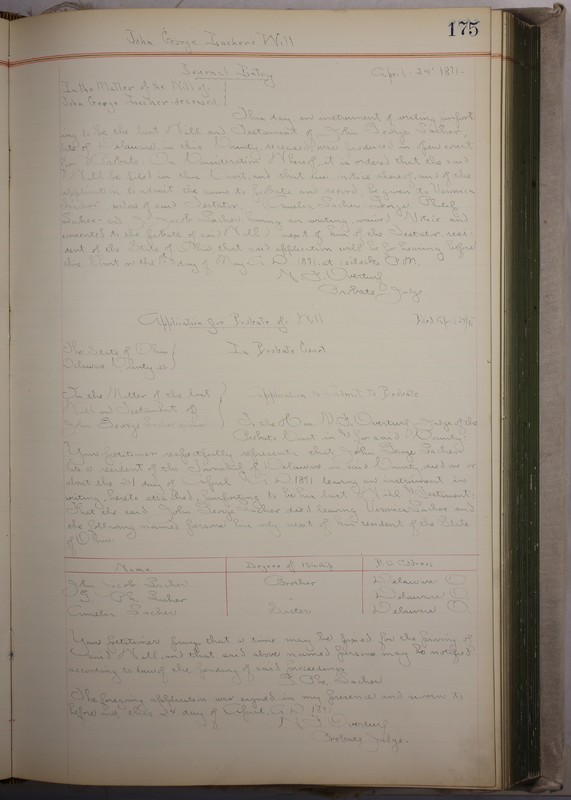 175
John George Lacher's Will
Journal Entry April 24" 1891
In the Matter of the Will of
John George Lacher deceased
This day an instrument of writing purport
ing to be the last Will and Testament of John George Lacher,
late of Delaware, in this County, deceased, was produced in open court
for Probate. In Consideration Whereof, it is ordered that the said
Will be filed in this Court, and that due notice thereof, and of the
application to admit the same to Probate and record be given to Veronica
Lacher widow of said Testator, Amelia Lacher George
Lacher and J Jacob Lacher having in writing waived Notice and
consented to the probate of said Will next of kin of the Testator, resi
dent of the State of Ohio that said application will be for hearing before
this Court on the day of May A.D. 1891, at o'clock P.M.
N F Overturf
Probate Judge
Application for Probate of Will Filed April 24/91
The State of Ohio
Delaware County ss In Probate Court
In the Matter of the last
Will and Testament of
John George Lacher
Application to Admit to Probate
To the Hon. N. F. Overturf Judge of the
Probate Court in & for said County
Your petitioner respectfully represents that John George Lacher
late a resident of the Township of Delaware in said County, died on or
about the 21 day of April A.D. 1891 leaving an instrument in
writing, hereto attached, purporting to be his last Will & Testament;
That the said John George Lacher died leaving Veronica Lacher and
the following named persons his only next of kin resident of the State
of Ohio:
Name Degree of Kinship P.O. Address
John Jacob Lacher Brother Delaware O
G. Ph. Lacher " Delaware O
Amelia Lacher Sister Delaware O
Your petitioner prays that a time may be fixed for the proving of
said Will, and that said above named persons may be notified
according to law of the pending of said proceedings
G. Ph. Lacher
The foregoing application was signed in my presence and sworn to
before me this 24 day of April, A.D. 1891
N F Overturf
Probate Judge.